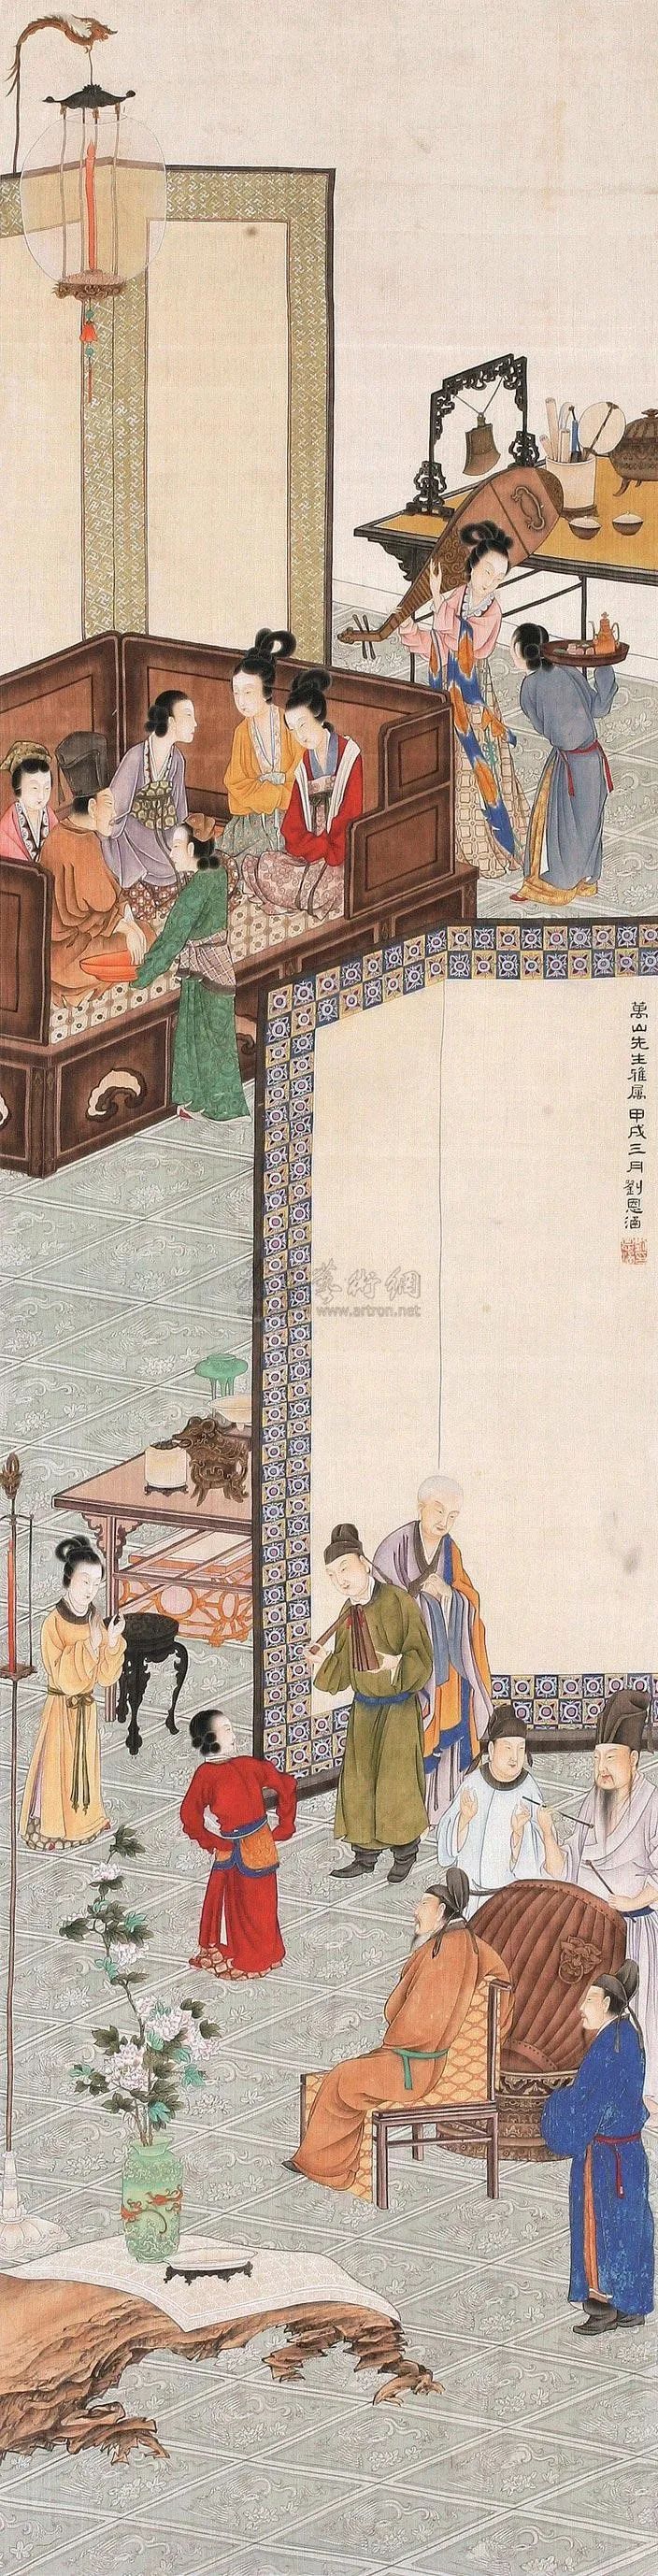 萬山先生雅屬 甲戌三月 劉恩涵
藝術網
www.artron.net